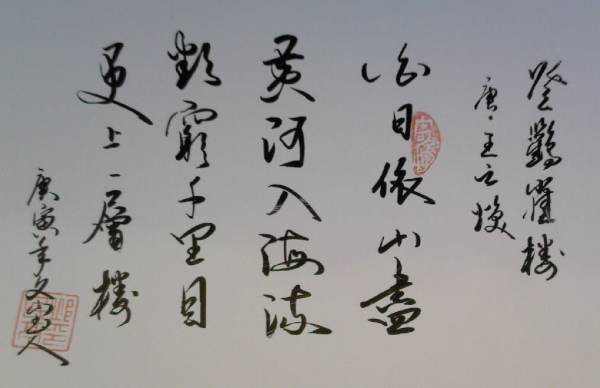 登鸛雀楼
唐·王之涣
白日依山盡
黄河入海流
欲窮千里目
更上一層楼
庚寅年文人